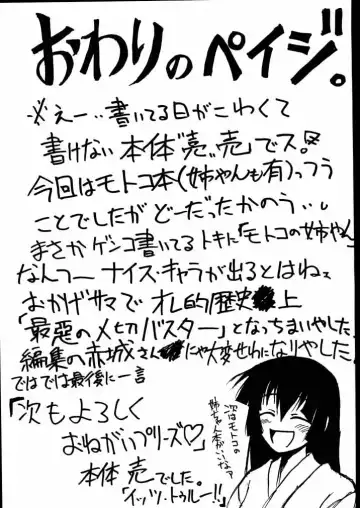 おわりのペイジ。
※えー‥書いてる日がこわくて
書けない本体"売"でス!
今回はモトコ本(姉やんも有)っつう
ことでしたがどーだったかのう‥
まさかゲンコ書いてるトキに「モトコの姉やん」
なんつーナイスキャラが出るとはねえ
おかげサマでオレ的歴史上
「最悪の〆切バスター」となっちまいやした。
編集の赤城さんにゃ大変せわになりやした。
ではでは最後に一言
「次もよろしく
おねがいプリーズ♡」
本体 売でした。
「イッツ・トゥルー!!」
次はモトコの
姉ちゃん本がいいなァ